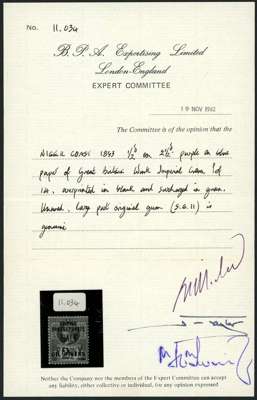 No. 11,034
B. P. A. Expertising Limited
London-England
EXPERT COMMITTEE
19 NOV 1982
The Committee is of the opinion that the
NIGER COAST 1893 ½d on 2½d purple on blue
paper of Great Britain Wmk Imperial Crown, pl of
14, overprinted in black and surcharged in green.
Unused, large part original gum (S.G. 11) is
genuine
11,034
BRITISH
PROTECTORATE
OIL RIVERS
Neither the Company nor the members of the Expert Committee can accept
any liability, either collective or individual, for any opinion expressed